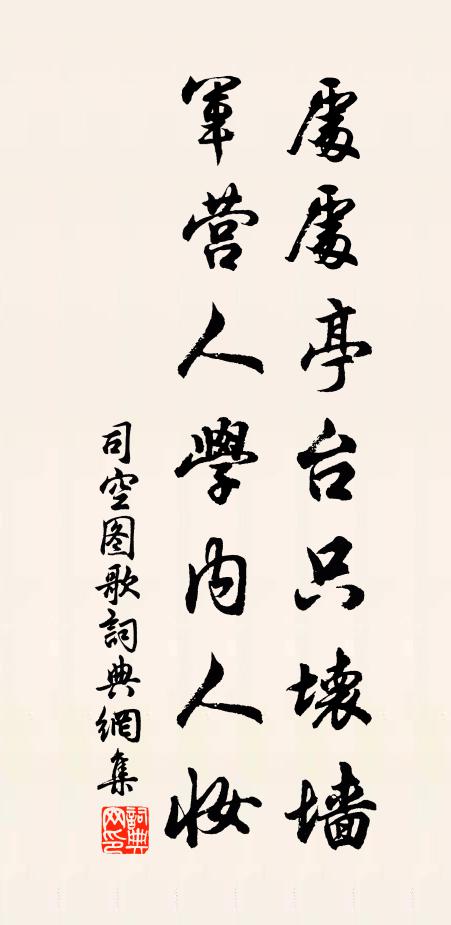 處處亭台只壞墻
軍營人學內人妝
司空图歌詞典網集
詞典網印